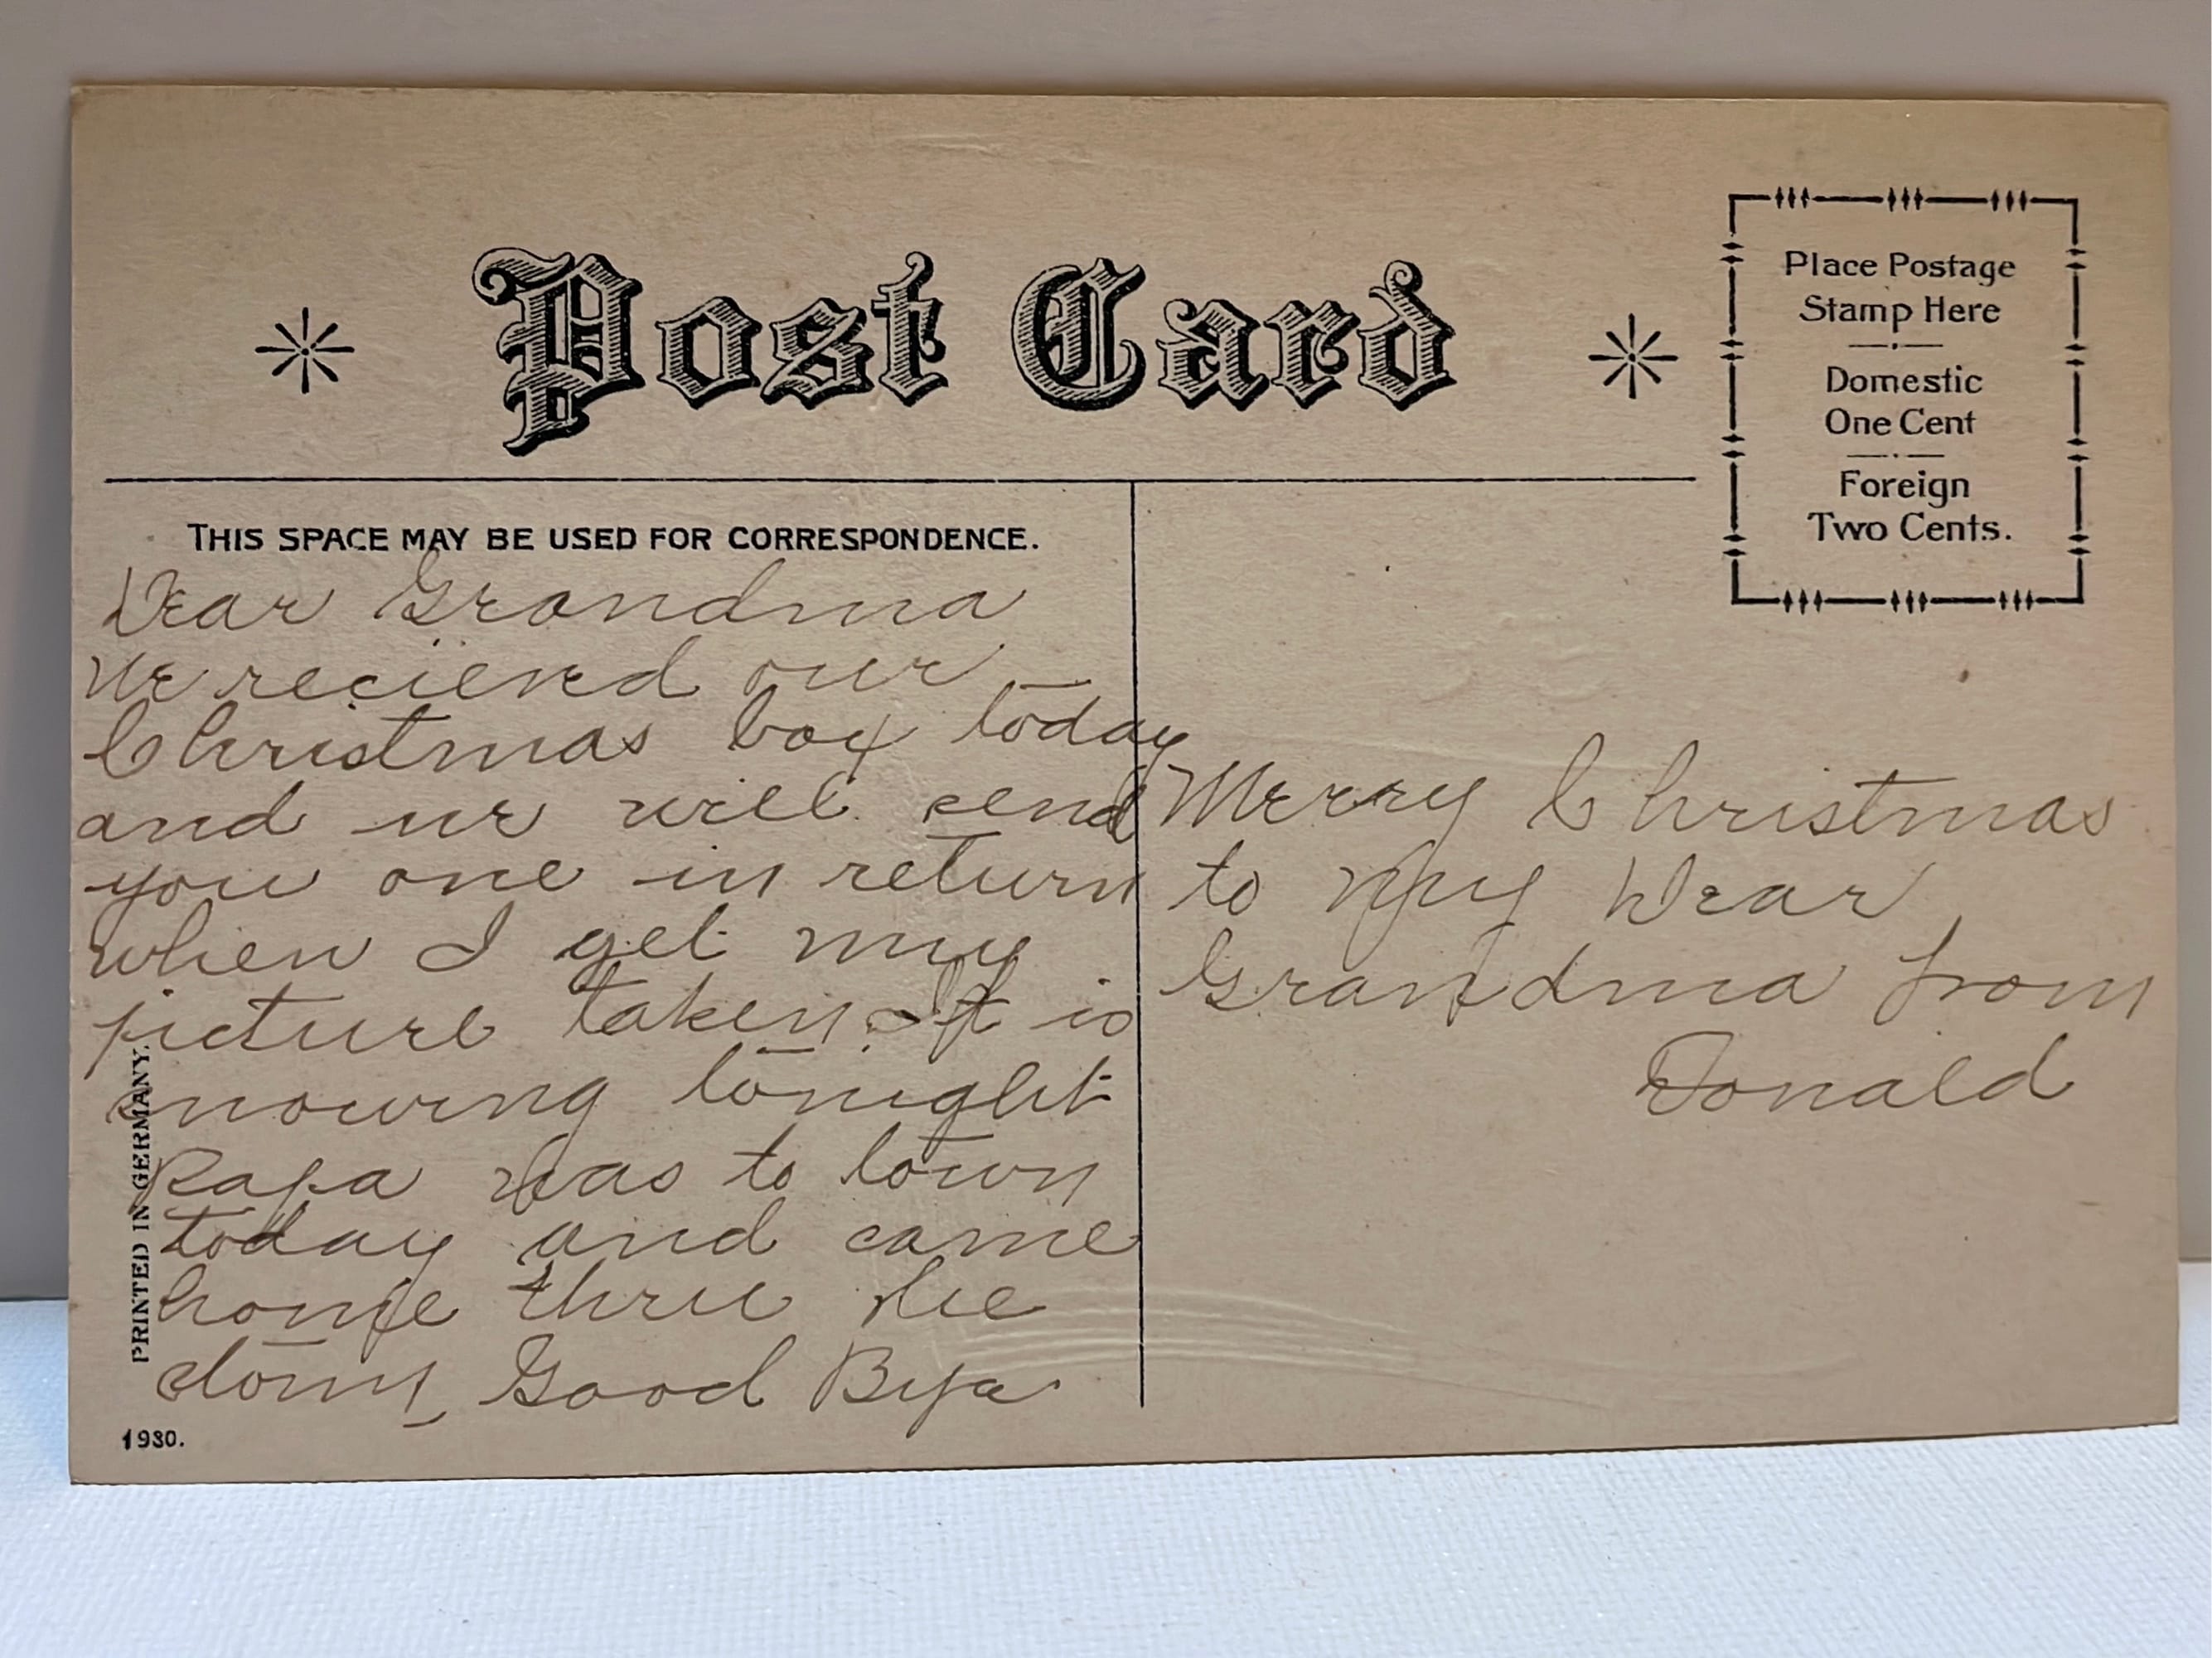 Post Card
Place Postage
Stamp Here
Domestic
One Cent
Foreign
Two Cents.
THIS SPACE MAY BE USED FOR CORRESPONDENCE.
Dear Grandma
We recieved our
Christmas box today
and we will send
you one in return
when I get my
picture taken. It is
snowing tonight
Papa was to town
today and came
home thru the
storm, Good Bye
Merry Christmas
to My Dear
Grandma from
Donald
PRINTED IN GERMANY.
1930.